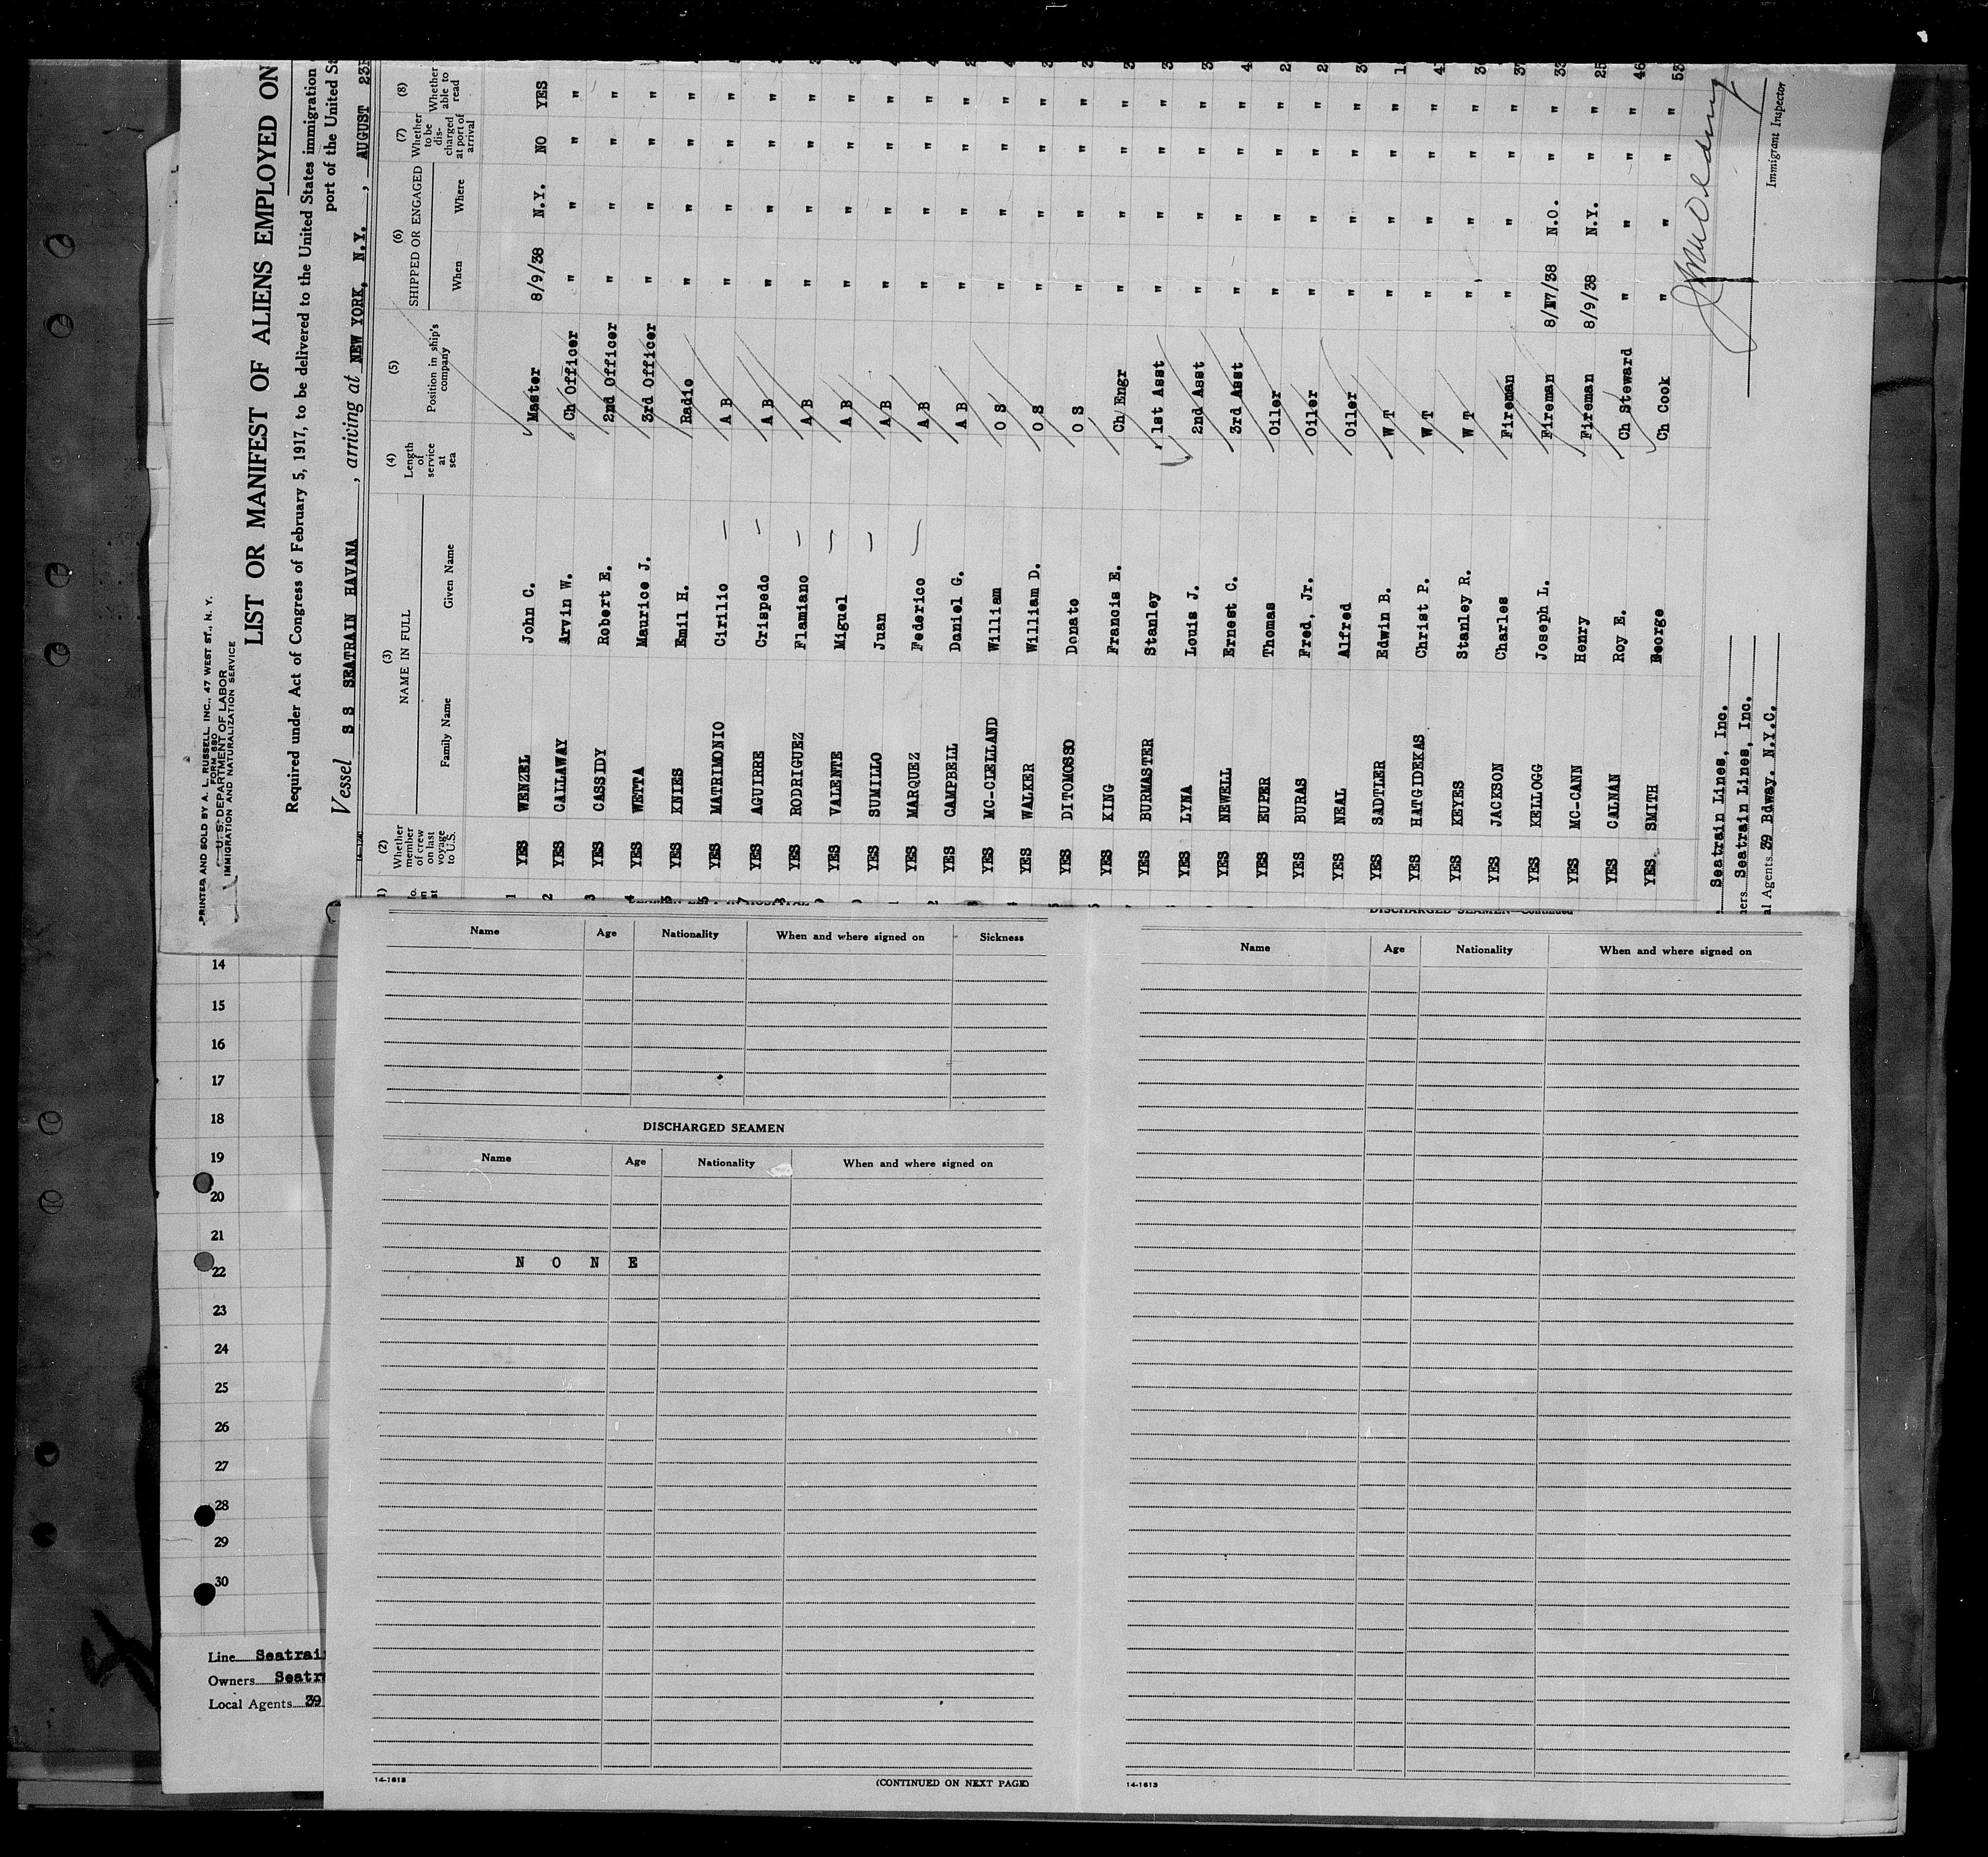 PRINTED AND SOLD BY A. L. RUSSELL, INC., 47 WEST ST., N. Y.
FORM 680
U. S. DEPARTMENT OF LABOR
IMMIGRATION AND NATURALIZATION SERVICE
LIST OR MANIFEST OF ALIENS EMPLOYED ON
Required under Act of Congress of February 5, 1917, to be delivered to the United States immigration
port of the United St
Vessel S S SEATRAIN HAVANA, arriving at NEW YORK, N.Y., AUGUST 23
(2) Whether member of crew on last voyage to U.S.
(3) NAME IN FULL
Family Name Given Name
(4) Length of service at sea
(5) Position in ship's company
(6) SHIPPED OR ENGAGED
When Where
(7) Whether to be discharged at port of arrival
(8) Whether able to read
1 YES WENZEL John C. Master 8/9/38 N.Y. NO YES
2 YES CALLAWAY Arvin W. Ch Officer " " " "
3 YES CASSIDY Robert E. 2nd Officer " " " "
4 YES WETTA Maurice J. 3rd Officer " " " "
5 YES KNIES Emil H. Radio " " " "
6 YES MATRIMONIO Cirilio A B " " " " 
7 YES AGUIRRE Crispedo A B " " " "
8 YES RODRIGUEZ Flamiano A B " " " "
YES VALENTE Miguel A B " " " "
YES SUMILLO Juan A B " " " "
YES MARQUEZ Federico A B " " " "
YES CAMPBELL Daniel G. A B " " " "
YES MC-CLELLAND William O S " " " "
YES WALKER William D. O S " " " "
YES DITOMOSSO Donato O S " " " "
YES KING Francis E. Ch Engr " " " "
YES BURMASTER Stanley 1st Asst " " " "
YES LYNA Louis J. 2nd Asst " " " "
YES NEWELL Ernest C. 3rd Asst " " " "
YES EUPER Thomas Oiler " " " "
YES BURAS Fred, Jr. Oiler " " " "
YES NEAL Alfred Oiler " " " "
YES SADTLER Edwin B. W T " " " "
YES HATGIDEKAS Christ P. W T " " " "
YES KEYES Stanley R. W T " " " "
YES JACKSON Charles Fireman " " " "
YES KELLOGG Joseph L. Fireman 8/17/38 N.O. " "
YES MC-CANN Henry Fireman 8/9/38 N.Y. " "
YES CALNAN Roy E. Ch Steward " " " "
YES SMITH George Ch Cook " " " "
Seatrain Lines, Inc.
ners Seatrain Lines, Inc.
al Agents 39 Bdway. N.Y.C.
Immigrant Inspector
14
15
16
17
18
19
20
21
22
23
24
25
26
27
28
29
30
Line Seatrai
Owners Seatr
Local Agents 39
Name Age Nationality When and where signed on Sickness
DISCHARGED SEAMEN
Name Age Nationality When and where signed on
N O N E
14-1613
(CONTINUED ON NEXT PAGE)
DISCHARGED SEAMEN—Continued
Name Age Nationality When and where signed on
14-1613